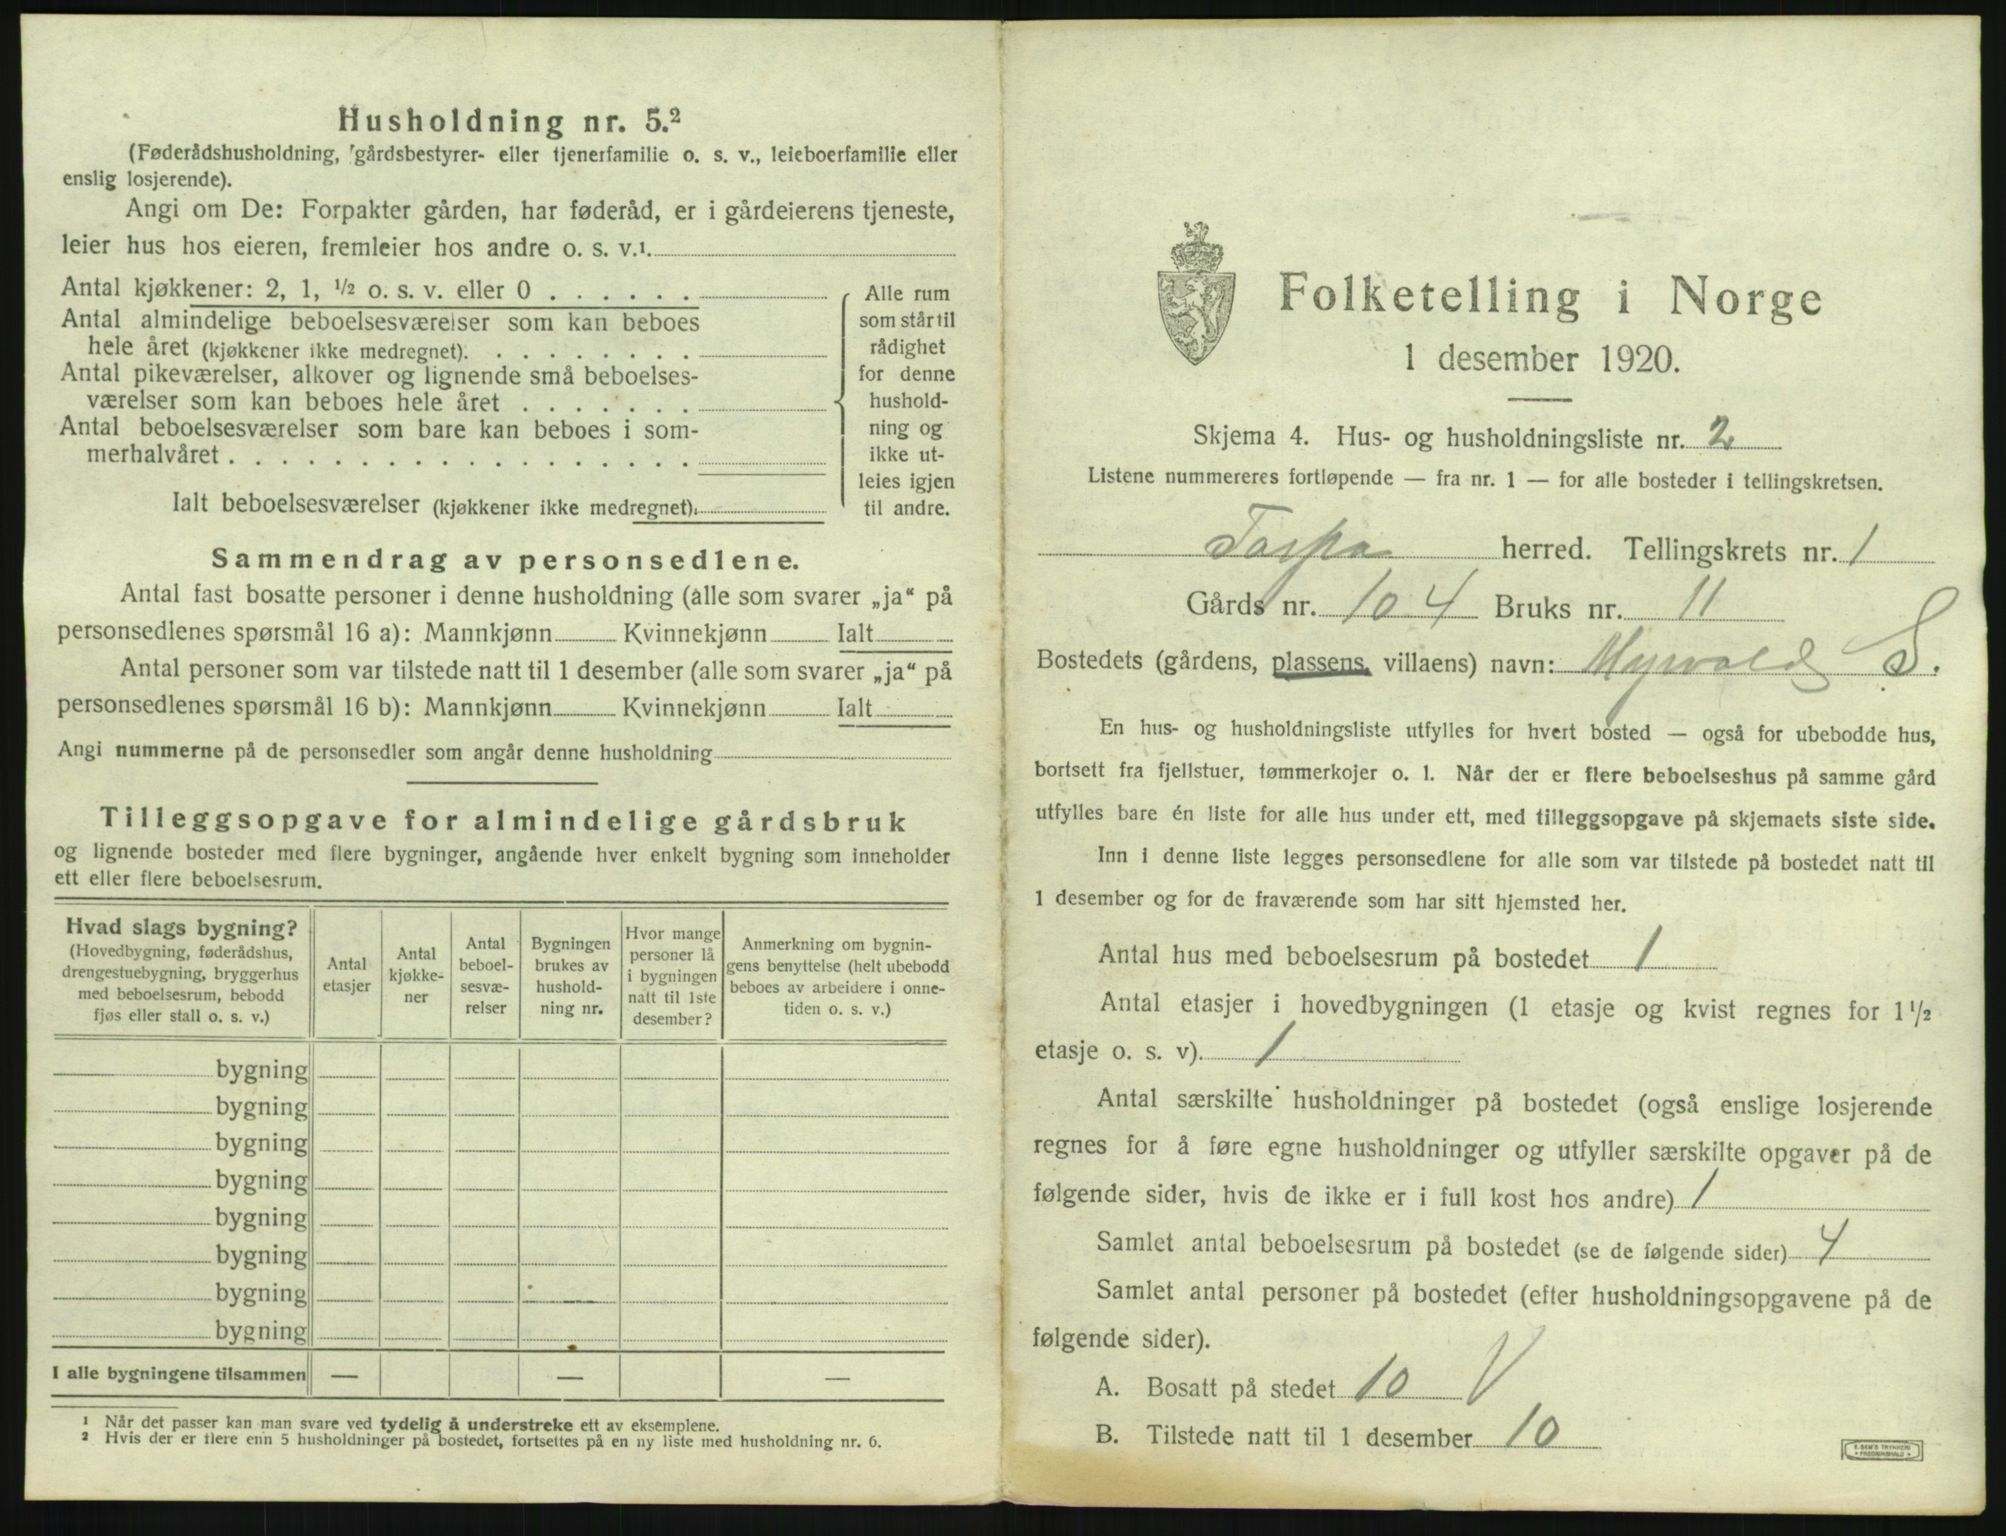 Husholdning nr. 5.²
(Føderådshusholdning, gårdsbestyrer- eller tjenerfamilie o. s. v., leieboerfamilie eller
enslig losjerende).
Angi om De: Forpakter gården, har føderåd, er i gårdeierens tjeneste,
leier hus hos eieren, fremleier hos andre o. s. v.¹
Antal kjøkkener: 2, 1, ½ o. s. v. eller 0
Antal almindelige beboelsesværelser som kan beboes
hele året (kjøkkener ikke medregnet).
Antal pikeværelser, alkover og lignende små beboelses-
værelser som kan beboes hele året
Antal beboelsesværelser som bare kan beboes i som-
merhalvåret
Ialt beboelsesværelser (kjøkkener ikke medregnet).
Alle rum
som står til
rådighet
for denne
hushold-
ning og
ikke ut-
leies igjen
til andre.
Sammendrag av personsedlene.
Antal fast bosatte personer i denne husholdning (alle som svarer „ja“ på
personsedlenes spørsmål 16 a): Mannkjønn Kvinnekjønn Ialt
Antal personer som var tilstede natt til 1 desember (alle som svarer „ja“ på
personsedlenes spørsmål 16 b): Mannkjønn Kvinnekjønn Ialt
Angi nummerne på de personsedler som angår denne husholdning
Tilleggsopgave for almindelige gårdsbruk
og lignende bosteder med flere bygninger, angående hver enkelt bygning som inneholder
ett eller flere beboelsesrum.
Hvad slags bygning?
(Hovedbygning, føderådshus,
drengestuebygning, bryggerhus
med beboelsesrum, bebodd
fjøs eller stall o. s. v.)
Antal
etasjer
Antal
kjøkke-
ner
Antal
beboel-
sesvæ-
relser
Bygningen
brukes av
hushold-
ning nr.
Hvor mange
personer lå
i bygningen
natt til 1ste
desember?
Anmerkning om bygnin-
gens benyttelse (helt ubebodd
beboes av arbeidere i onne-
tiden o. s. v.)
bygning
bygning
bygning
bygning
bygning
bygning
bygning
bygning
I alle bygningene tilsammen — — —
¹ Når det passer kan man svare ved tydelig å understreke ett av eksemplene.
² Hvis der er flere enn 5 husholdninger på bostedet, fortsettes på en ny liste med husholdning nr. 6.
Folketelling i Norge
1 desember 1920.
Skjema 4. Hus- og husholdningsliste nr. 2
Listene nummereres fortløpende — fra nr. 1 — for alle bosteder i tellingskretsen.
Torpa herred. Tellingskrets nr. 1
Gårds nr. 104 Bruks nr. 11
Bostedets (gårdens, plassens, villaens) navn: Myrvold S.
En hus- og husholdningsliste utfylles for hvert bosted — også for ubebodde hus,
bortsett fra fjellstuer, tømmerkojer o. l. Når der er flere beboelseshus på samme gård
utfylles bare én liste for alle hus under ett, med tilleggsopgave på skjemaets siste side.
Inn i denne liste legges personsedlene for alle som var tilstede på bostedet natt til
1 desember og for de fraværende som har sitt hjemsted her.
Antal hus med beboelsesrum på bostedet 1
Antal etasjer i hovedbygningen (1 etasje og kvist regnes for 1½
etasje o. s. v). 1
Antal særskilte husholdninger på bostedet (også enslige losjerende
regnes for å føre egne husholdninger og utfyller særskilte opgaver på de
følgende sider, hvis de ikke er i full kost hos andre) 1
Samlet antal beboelsesrum på bostedet (se de følgende sider) 4
Samlet antal personer på bostedet (efter husholdningsopgavene på de
følgende sider).
A. Bosatt på stedet 10 V
B. Tilstede natt til 1 desember 10
E. SEM'S TRYKKERI
FREDRIKSHALD